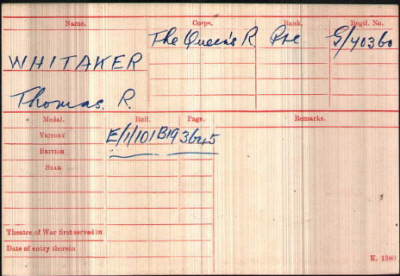 Name. Corps. Rank. Regtl. No.
WHITAKER The Queen's R. Pte G/40360
Thomas. R.
Medal. Roll. Page. Remarks.
VICTORY E/1/101B19 3645
BRITISH
STAR
Theatre of War first served in
Date of entry therein
K. 1380